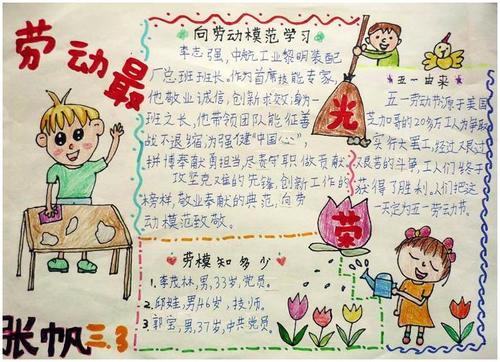 劳动最
光
荣
向劳动模范学习
李志强，中航工业黎明装配
厂总班班长。作为首席技能专家，
他敬业诚信，创新求效；身为一
班之长，他带领团队能征善
战不退缩，为强健“中国心”，
拼博奉献勇担当，尽责守职做贡献
攻坚克难的先锋，创新工作的
榜样，敬业奉献的典范，向劳
动模范致敬。
五一由来
五一劳动节源于美国
芝加哥的20多万工人为争取
实行大罢工，经过又艰过
艰苦的斗争，工人们终于
获得了胜利。人们把这
一天定为五一劳动节。
劳模知多少
1.李茂林，男，33岁，党员。
2.邱娃，男46岁，技师。
3.郭宝，男，37岁，中共党员。
张帆三.3